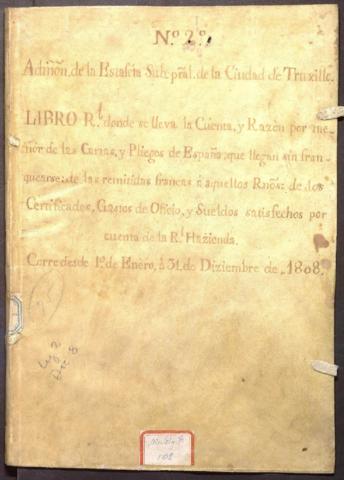 Nº. 2º.
Admõn. de la Estafeta Subprãl. de la Ciudad de Truxillo.
LIBRO Rl. donde se lleva la Cuenta, y Razòn por me-
nor de las Cartas, y Pliegos de España, que llegan sin fran-
quearse: de las remitidas francas à aquellos Rños: de los
Certificados, Gastos de Oficio, y Sueldos satisfechos por
cuenta de la Rl. Hazienda.
Corre desde 1º. de Enèro, à 31. de Diziembre de 1808.